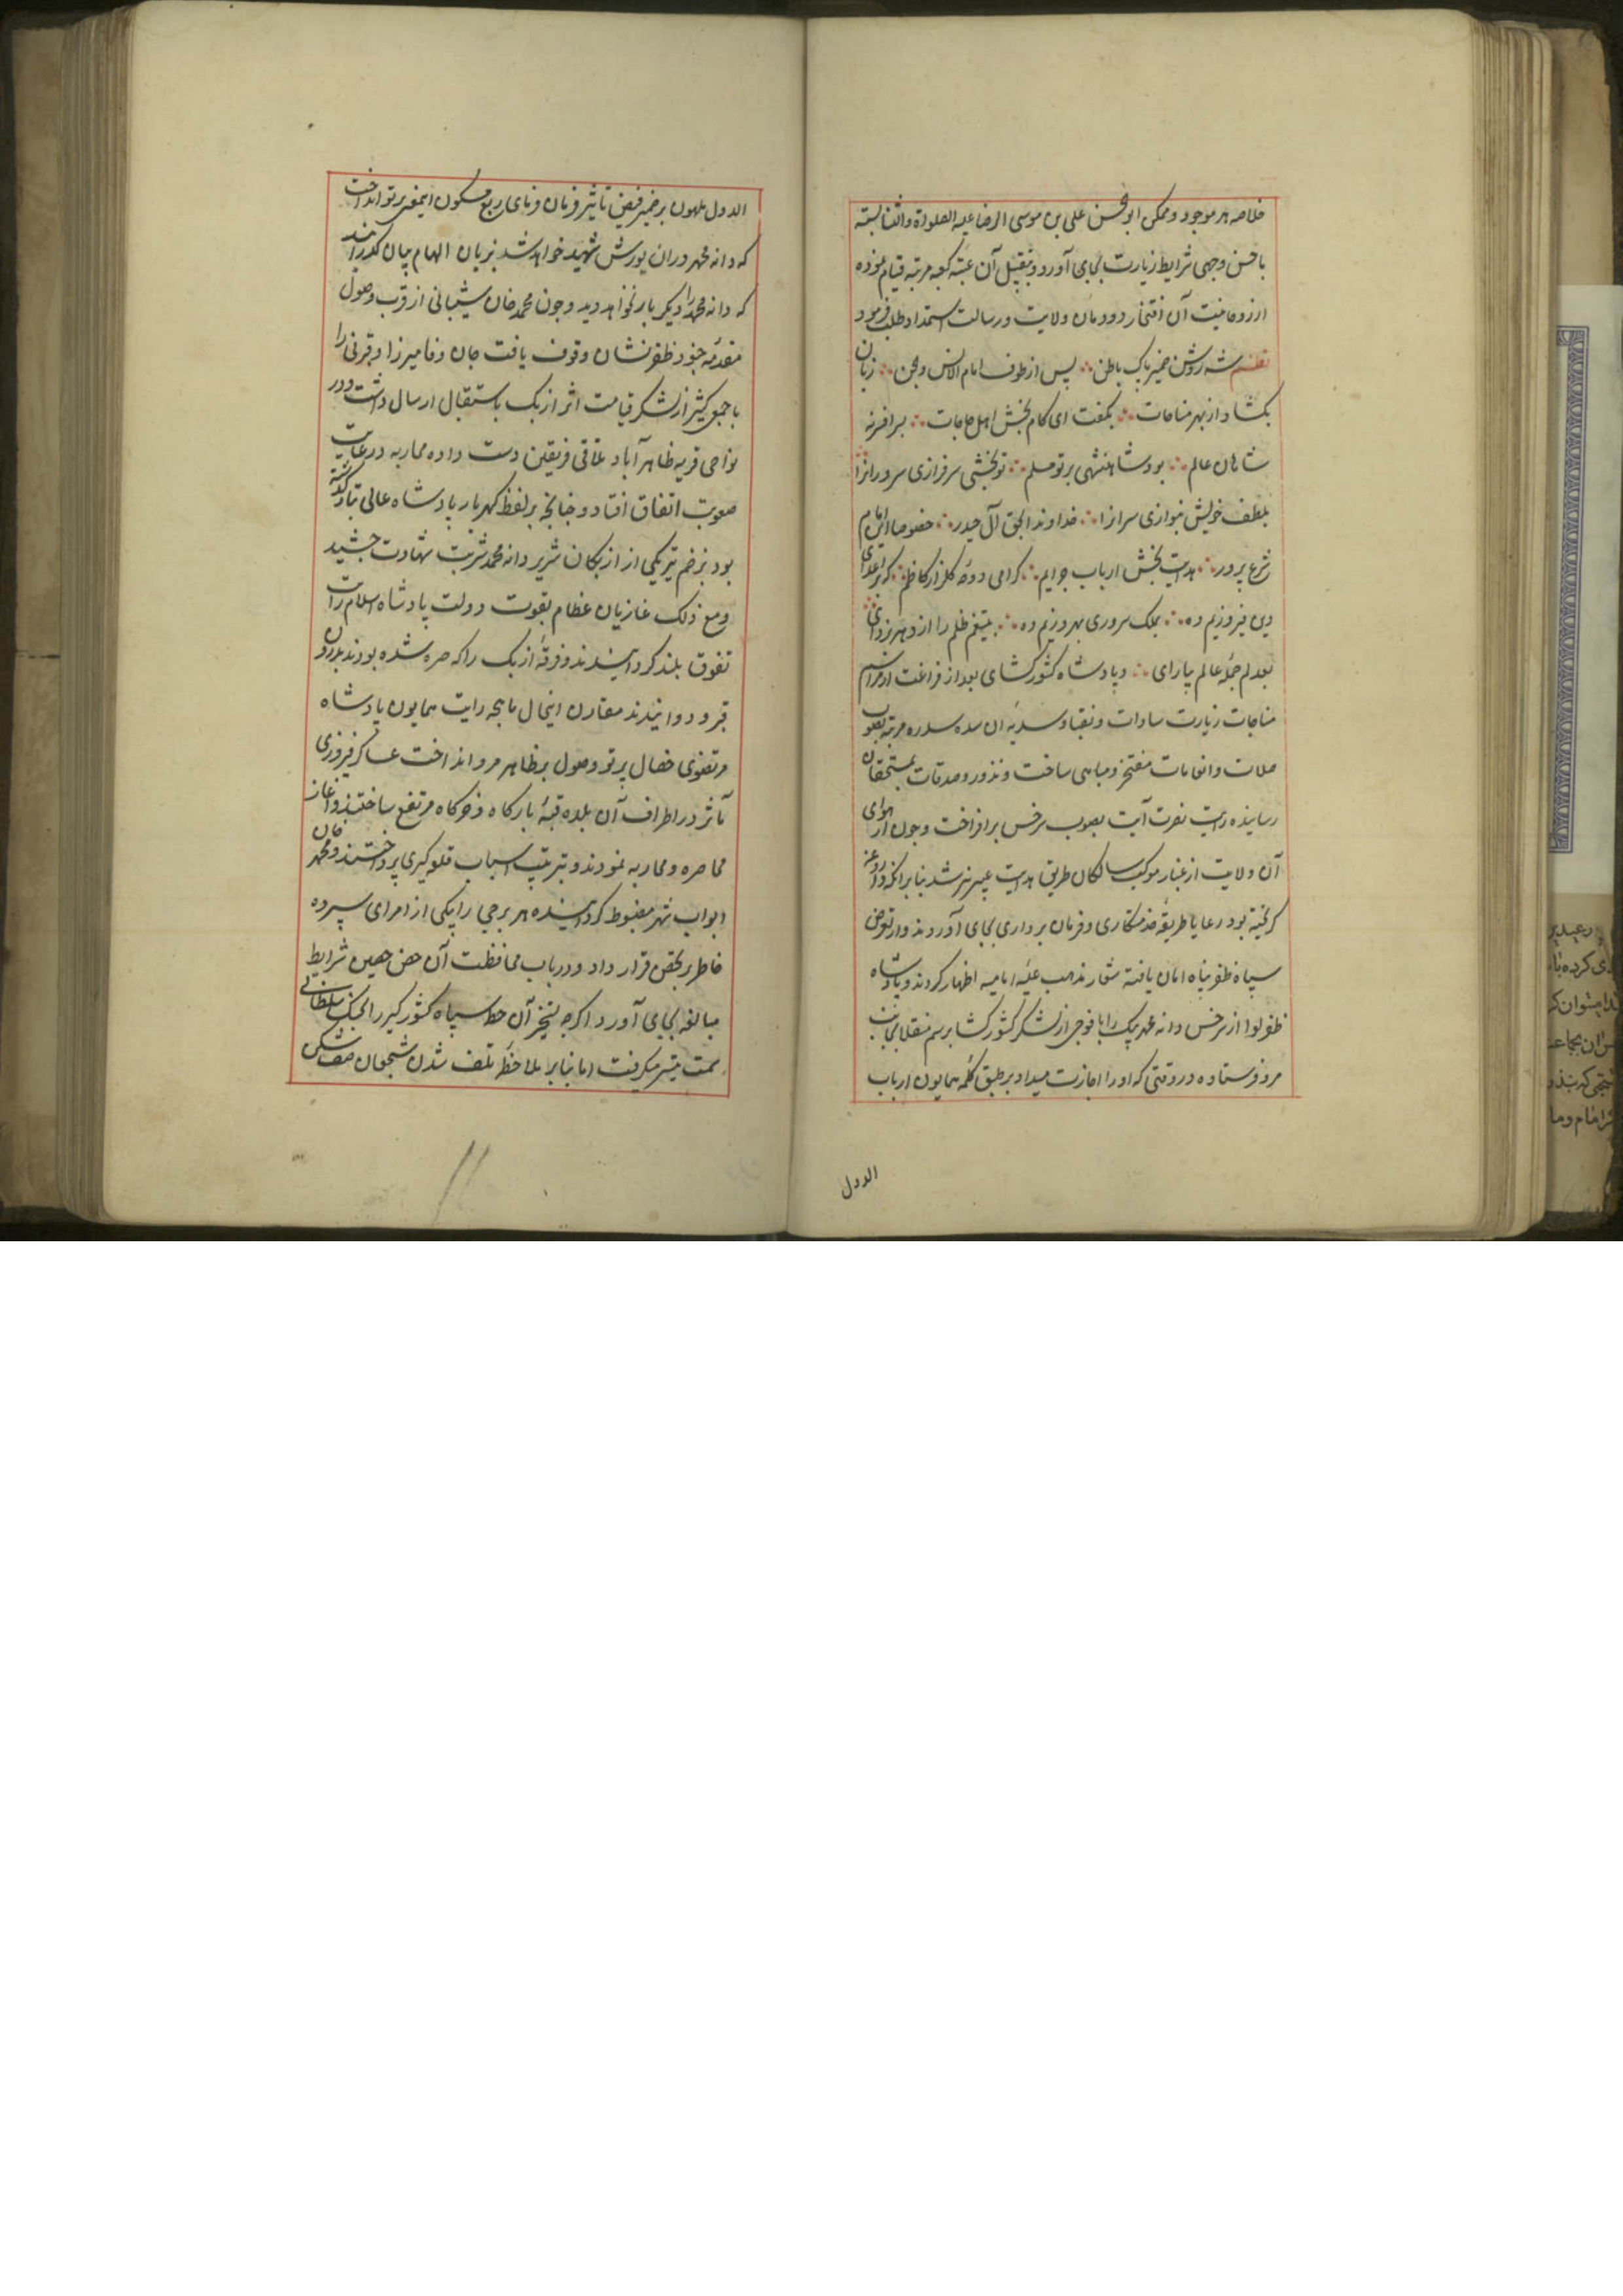 خلاصه هر موجود و ممکن ابو الحسن علی بن موسی الرضا علیه الصلواة و الثنا بسته
باحسن وجهی شرایط زیارت بجای آورد و بتقبیل آن عتبه کعبه مرتبه قیام نموده
از روحانیت آن افتخار دودمان ولایت و رسالت استمداد طلب فرمود
نظم شه روشن ضمیر پاک باطن ∴ پس از طوف امام الانس و الجن ∴ زبان
بکشاد از بهر مناجات ∴ بگفت ای کام بخش اهل حاجات ∴ سرافرزنه
شاهان عالم ∴ بود شاهنشهی بر تو مسلم ∴ تو بخشی سرفرازی سرورانرا
بلطف خویش بنوازی سرانرا ∴ خداوندا بحق آل حیدر ∴ خصوصا این امام
شرع پرور ∴ هدایت بخش ارباب جرایم ∴ کرامی دوحه کلزار کاظم ∴ که بر اعدای
دین فیروزیم ده ∴ بملک سروری بهروزیم ده ∴ بتیغم ظلم را از دهر بزدای
بعدلم جمله عالم بیارای ∴ و پادشاه کشورکشای بعد از فراغت از مراسم
مناجات زیارت سادات و نقبا و سدنه آن سده سدره مرتبه بصوب
صلات و انعامات مفتخر و مباهی ساخت و نذور و صدقات بمستحقان
رسانیده رایت نصرت آیت بصوب سرخس برافراخت و چون هوای
آن ولایت از غبار موکب سالکان طریق هدایت عبیر بیز شد بنابر آنکه داروغه
کریخته بود رعایا طریقه خدمتکاری و فرمان برداری بجای آوردند و از تعرض
سپاه ظفر پناه امان یافته شعار مذهب علیه امامیه اظهار کردند و پادشاه
ظفر لوا از سرخس دانه محمد بیک را با فوجی از لشکر کشورکشا برسم منقلا بجانب
مرو فرستاده در وقتی که او را اجازت میداد بر طبق کلمه همایون ارباب
الدول
الدول ملهمون بر ضمیر فیض تاثیر فرمان فرمای ربع مسکون اینمعنی پرتو انداخت
که دانه محمد در ان یورش شهید خواهد شد بزبان الهام بیان گذرانید
که دانه محمد را دیکر بار نخواهد دید و چون محمد خان شیبانی از قرب وصول
مقدمه جنود ظفر نشان وقوف یافت جان وفا میرزا و قنبر بی را
با جمعی کثیر از لشکر قیامت اثر ازبک باستقبال ارسال داشت و در
نواحی قریه طاهرآباد تلاقی فریقین دست داده محاربه در غایت
صعوبت اتفاق افتاد و چنانچه بر لفظ کهربار پادشاه عالی تبار گذشته
بود بزخم تیر یکی از ازبکان شریر دانه محمد شربت شهادت چشید
ومع ذلک غازیان عظام بقوت دولت پادشاه اسلام رایت
تفوق بلند کردانیدند و فرقه ازبک را که صره شده بودند بدرون
مرو دوانیدند مقارن اینحال ماهچه رایت همایون پادشاه
مرتضوی خصال پرتو وصول بر ظاهر مرو انداخت عساکر فیروزی
مآثر در اطراف آن بلده قبه بارکاه و خرکاه مرتفع ساختند و آغاز
محاصره و محاربه نمودند و بترتیب اسباب قلعه کیری پرداختند و محمد خان
ابواب شهر مضبوط کردانیده هر برجی را بیکی از امرای سپرده
خاطر بتحصن قرار داد و در باب محافظت آن حصن حصین شرایط
مبالغه بجای آورد اگرچه تسخیر آن خطه سپاه کشور کیر را بجنک سلطانی
سمت تیسر میکرفت اما بنابر ملاحظه تلف شدن شجعان صف شکن